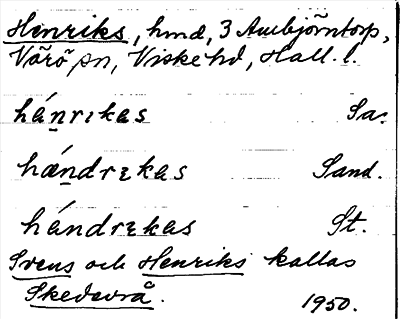 Henriks, hmd, 3 Aunbjörntorp,
Värö sn, Viske hd, Hall. l.
hánrɩkas Sa.
hǽndrɩkas Sand.
hándrɩkas St.
Svens och Henriks kallas
Skedevrå. 1950.